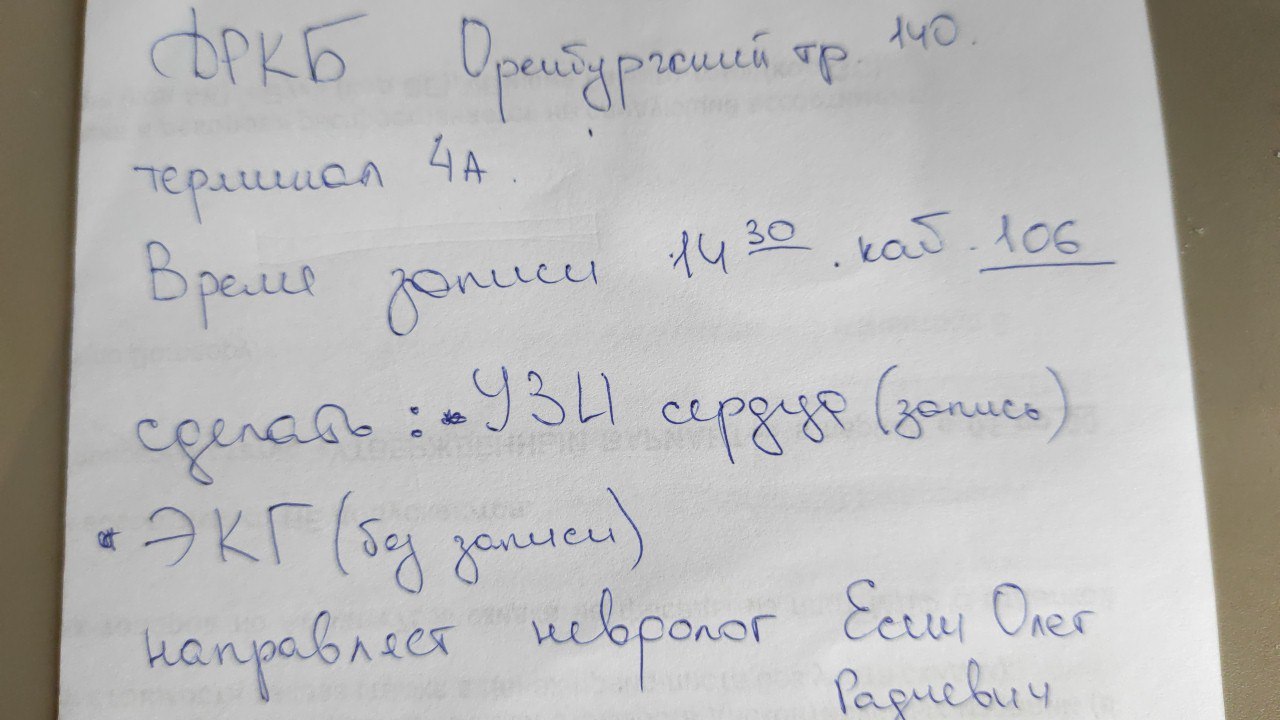 ДРКБ Оренбургский тр. 140.
терминал 4А.
Время записи 14 30. каб. 106
сделать: УЗИ сердца (запись)
• ЭКГ (без записи)
направляет невролог Есин Олег
Радиевич